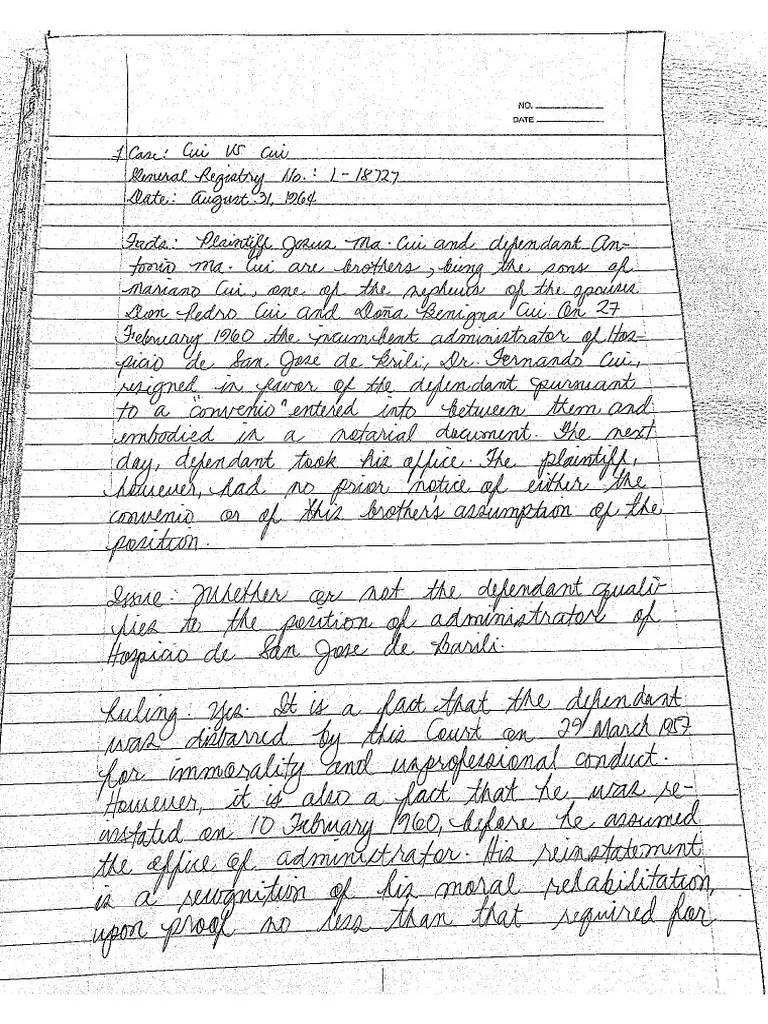 NO.
DATE
1 Case: Cui vs Cui
General Registry No.: L-18727
Date: August 31, 1964
Facts: Plaintiff Jesus Ma. Cui and defendant An-
tonio Ma. Cui are brothers, being the sons of
Mariano Cui, one of the nephews of the spouses
Don Pedro Cui and Doña Benigna Cui. On 27
February 1960 the incumbent administrator of Hos-
picio de San Jose de Brili, Dr. Fernando Cui,
resigned in favor of the defendant pursuant
to a "convenio" entered into between them and
embodied in a notarial document. The next
day, defendant took his office. The plaintiff,
however, had no prior notice of either the
convenio or of this brothers assumption of the
position.
Issue: Whether or not the defendant quali-
fies to the position of administrator of
Hospicio de San Jose de Barili.
Ruling: Yes. It is a fact that the defendant
was disbarred by this Court on 29 March 1957
for immorality and unprofessional conduct.
However, it is also a fact that he was re-
instated on 10 February 1960, before he assumed
the office of administrator. His reinstatement
is a recognition of his moral rehabilitation,
upon proof no less than that required for